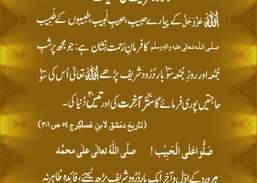 اللہ عزوجل کے پیارے حبیب، حبیبِ لبیب، طبیبوں کے طبیب
صلی اللہ تعالیٰ علیہ والہٖ وسلم کا فرمانِ رحمت نشان ہے: جو مجھ پر شبِ
جمعہ اور روزِ جمعہ سو بار دُرود شریف پڑھے اللہ تعالیٰ اُس کی سو
حاجتیں پوری فرمائے گا ستّر آخرت کی اور تیس دنیا کی۔
(تاریخ دمشق لابن عساکر ج ۵۴ ص ۳۰۱)
صَلُّوا عَلَی الْحَبِیْب! صلی اللہُ تعالیٰ علیٰ محمَّد
ہر ورد کے اوّل و آخر ایک بار دُرود شریف پڑھ لیجئے، فائدہ ظاہر نہ